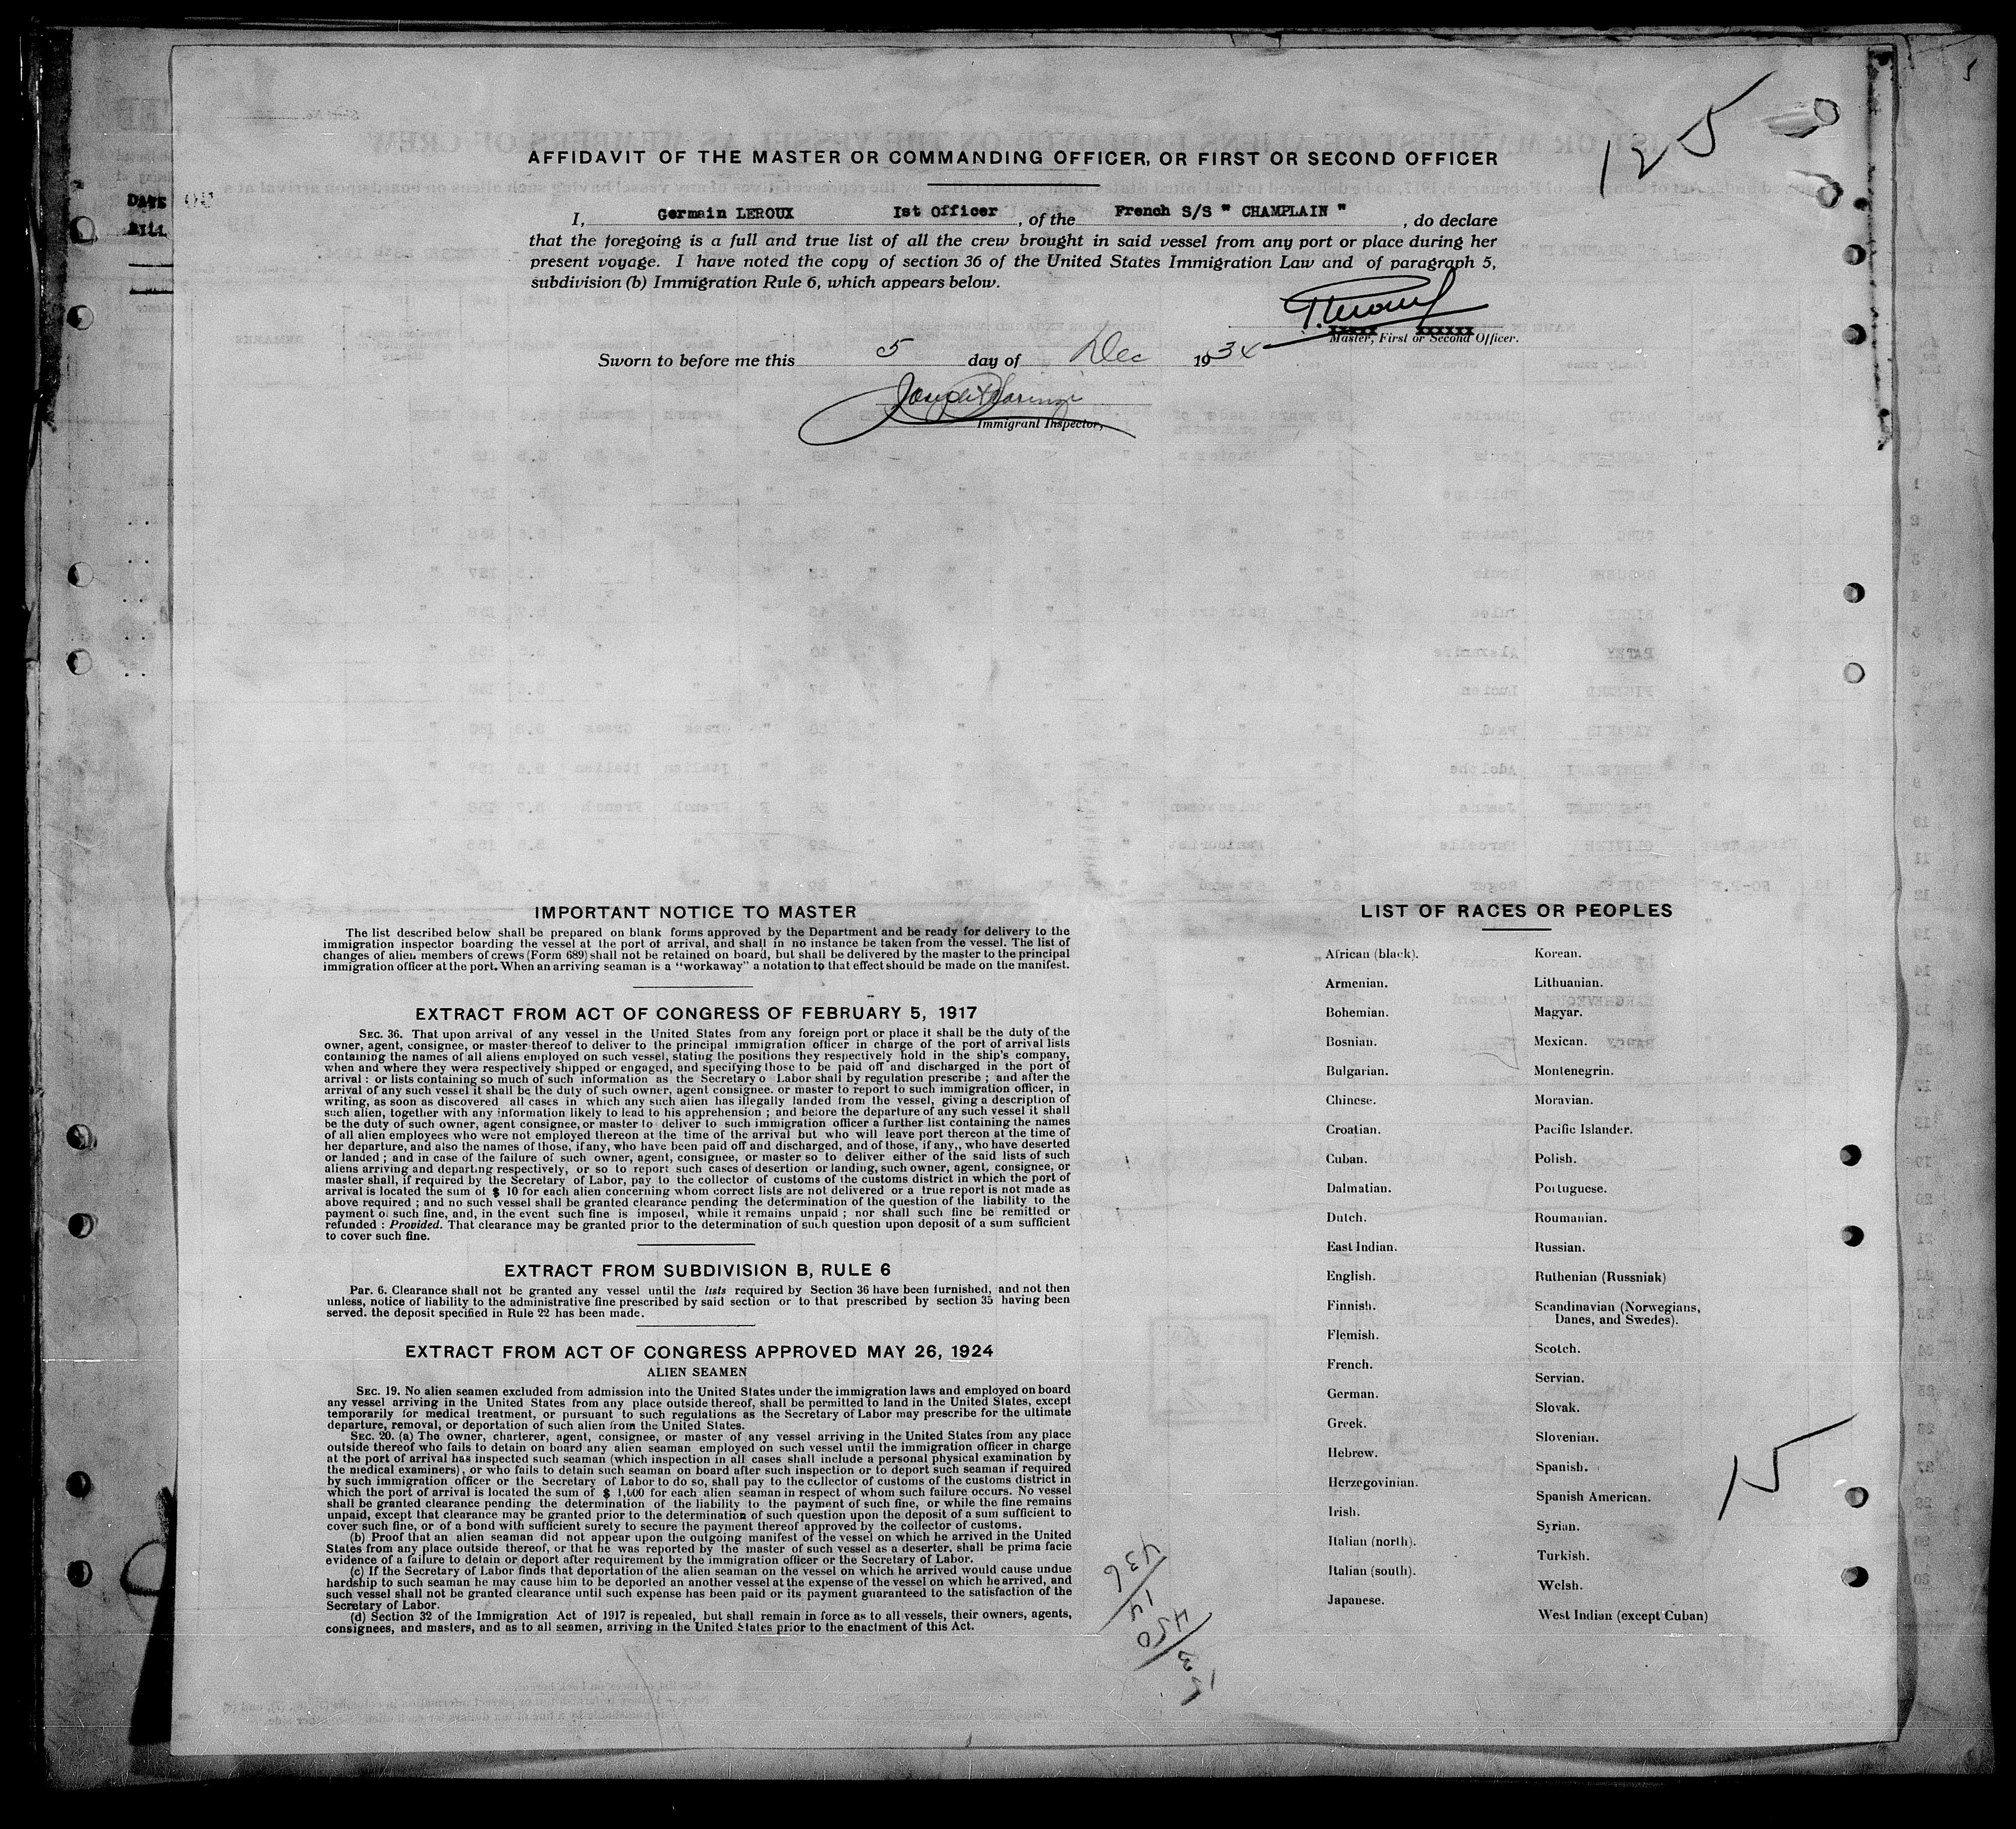 125
AFFIDAVIT OF THE MASTER OR COMMANDING OFFICER, OR FIRST OR SECOND OFFICER
I, Germain LEROUX Ist Officer, of the French S/S " CHAMPLAIN ", do declare
that the foregoing is a full and true list of all the crew brought in said vessel from any port or place during her
present voyage. I have noted the copy of section 36 of the United States Immigration Law and of paragraph 5,
subdivision (b) Immigration Rule 6, which appears below.
xxxxx xxxxxx
Master, First or Second Officer.
Sworn to before me this 5 day of Dec 1934
Immigrant Inspector,
IMPORTANT NOTICE TO MASTER
The list described below shall be prepared on blank forms approved by the Department and be ready for delivery to the
immigration inspector boarding the vessel at the port of arrival, and shall in no instance be taken from the vessel. The list of
changes of alien members of crews (Form 689) shall not be retained on board, but shall be delivered by the master to the principal
immigration officer at the port. When an arriving seaman is a "workaway" a notation to that effect should be made on the manifest.
EXTRACT FROM ACT OF CONGRESS OF FEBRUARY 5, 1917
SEC. 36. That upon arrival of any vessel in the United States from any foreign port or place it shall be the duty of the
owner, agent, consignee, or master thereof to deliver to the principal immigration officer in charge of the port of arrival lists
containing the names of all aliens employed on such vessel, stating the positions they respectively hold in the ship's company,
when and where they were respectively shipped or engaged, and specifying those to be paid off and discharged in the port of
arrival : or lists containing so much of such information as the Secretary o Labor shall by regulation prescribe ; and after the
arrival of any such vessel it shall be the duty of such owner, agent consignee. or master to report to such immigration officer, in
writing, as soon as discovered all cases in which any such alien has illegally landed from the vessel, giving a description of
such alien, together with any information likely to lead to his apprehension ; and before the departure of any such vessel it shall
be the duty of such owner, agent consignee, or master to deliver to such immigration officer a further list containing the names
of all alien employees who were not employed thereon at the time of the arrival but who will leave port thereon at the time of
her departure, and also the names of those, if any, who have been paid off and discharged, and of those, if any,, who have deserted
or landed ; and in case of the failure of such owner, agent, consignee, or master so to deliver either of the said lists of such
aliens arriving and departing respectively, or so to report such cases of desertion or landing, such owner, agent, consignee, or
master shall, if required by the Secretary of Labor, pay to the collector of customs of the customs district in which the port of
arrival is located the sum of $ 10 for each alien concerning whom correct lists are not delivered or a true report is not made as
above required ; and no such vessel shall be granted clearance pending the determination of the question of the liability to the
payment of such fine, and, in the event such fine is imposed, while it remains unpaid ; nor shall such fine be remitted or
refunded : Provided. That clearance may be granted prior to the determination of such question upon deposit of a sum sufficient
to cover such fine.
EXTRACT FROM SUBDIVISION B, RULE 6
Par. 6. Clearance shall not be granted any vessel until the lists required by Section 36 have been furnished, and not then
unless, notice of liability to the administrative fine prescribed by said section or to that prescribed by section 35 having been
served. the deposit specified in Rule 22 has been made.
EXTRACT FROM ACT OF CONGRESS APPROVED MAY 26, 1924
ALIEN SEAMEN
SEC. 19. No alien seamen excluded from admission into the United States under the immigration laws and employed on board
any vessel arriving in the United States from any place outside thereof, shall be permitted to land in the United States, except
temporarily for medical treatment, or pursuant to such regulations as the Secretary of Labor may prescribe for the ultimate
departure, removal, or deportation of such alien from the United States.
SEC. 20. (a) The owner, charterer, agent, consignee, or master of any vessel arriving in the United States from any place
outside thereof who fails to detain on board any alien seaman employed on such vessel until the immigration officer in charge
at the port of arrival has inspected such seaman (which inspection in all cases shall include a personal physical examination by
the medical examiners), or who fails to detain such seaman on board after such inspection or to deport such seaman if required
by such immigration officer or the Secretary of Labor to do so, shall pay to the collector of customs of the customs district in
which the port of arrival is located the sum of $ 1,000 for each alien seaman in respect of whom such failure occurs. No vessel
shall be granted clearance pending the determination of the liability to the payment of such fine, or while the fine remains
unpaid, except that clearance may be granted prior to the determination of such question upon the deposit of a sum sufficient to
cover such fine, or of a bond with sufficient surely to secure the payment thereof approved by the collector of customs.
(b) Proof that an alien seaman did not appear upon the outgoing manifest of the vessel on which he arrived in the United
States from any place outside thereof, or that he was reported by the master of such vessel as a deserter, shall be prima facie
evidence of a failure to detain or deport after requirement by the immigration officer or the Secretary of Labor.
(c) If the Secretary of Labor finds that deportation of the alien seaman on the vessel on which he arrived would cause undue
hardship to such seaman he may cause him to be deported an another vessel at the expense of the vessel on which he arrived, and
such vessel shall not be granted clearance until such expense has been paid or its payment guaranteed to the satisfaction of the
Secretary of Labor.
(d) Section 32 of the Immigration Act of 1917 is repealed, but shall remain in force as to all vessels, their owners, agents,
consignees, and masters, and as to all seamen, arriving in the United States prior to the enactment of this Act.
LIST OF RACES OR PEOPLES
African (black).
Armenian.
Bohemian.
Bosnian.
Bulgarian.
Chinese.
Croatian.
Cuban.
Dalmatian.
Dutch.
East Indian.
English.
Finnish.
Flemish.
French.
German.
Greek.
Hebrew.
Herzegovinian.
Irish.
Italian (north).
Italian (south).
Japanese.
Korean.
Lithuanian.
Magyar.
Mexican.
Montenegrin.
Moravian.
Pacific Islander.
Polish.
Portuguese.
Roumanian.
Russian.
Ruthenian (Russniak)
Scandinavian (Norwegians,
Danes, and Swedes).
Scotch.
Servian.
Slovak.
Slovenian.
Spanish.
Spanish American.
Syrian.
Turkish.
Welsh.
West Indian (except Cuban)
15
436
14
450